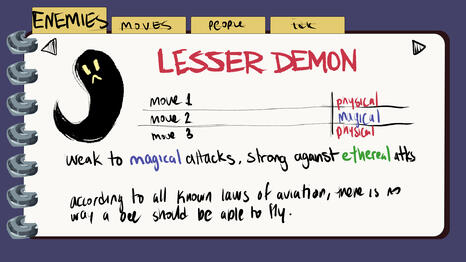 ENEMIES
MOVES
PEOPLE
LESSER DEMON
move 1 physical
move 2 magical
move 3 physical
weak to magical attacks, strong against ethereal atks
according to all known laws of aviation, there is no
way a bee should be able to fly.